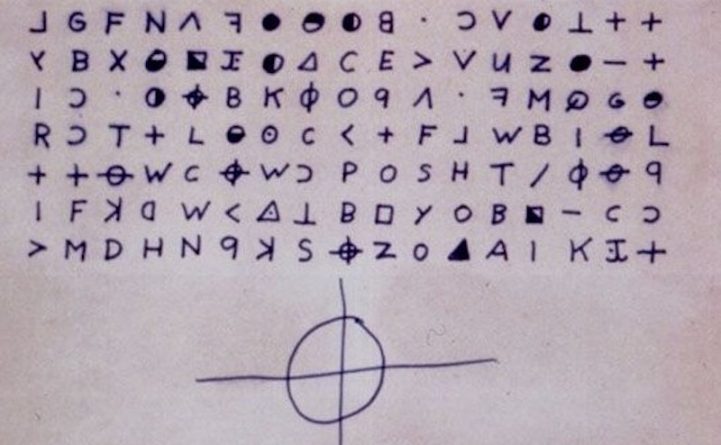 ⅃ G F N Λ ꟻ ● ◓ ◐ 8 · Ɔ V ◐ ⊥ + +
Y B X ◓ ◪ Ɪ ◐ △ C E > V U Z ● - +
I Ɔ · ◑ ⌖ B K Φ O 9 Λ · ꟻ M G ◓
R Ɔ T + L ◓ ⊙ C < + F ⅃ W B I ⊖ L
+ + ⊖ W C ⌖ W Ɔ P O S H T / Φ ⊖ 9
I F ꓘ ᗡ W < ◬ ⊥ B □ Y O B ◪ - C Ɔ
> M D H N 9 ꓘ S ⌖ Z O ▲ A I K Ɪ +